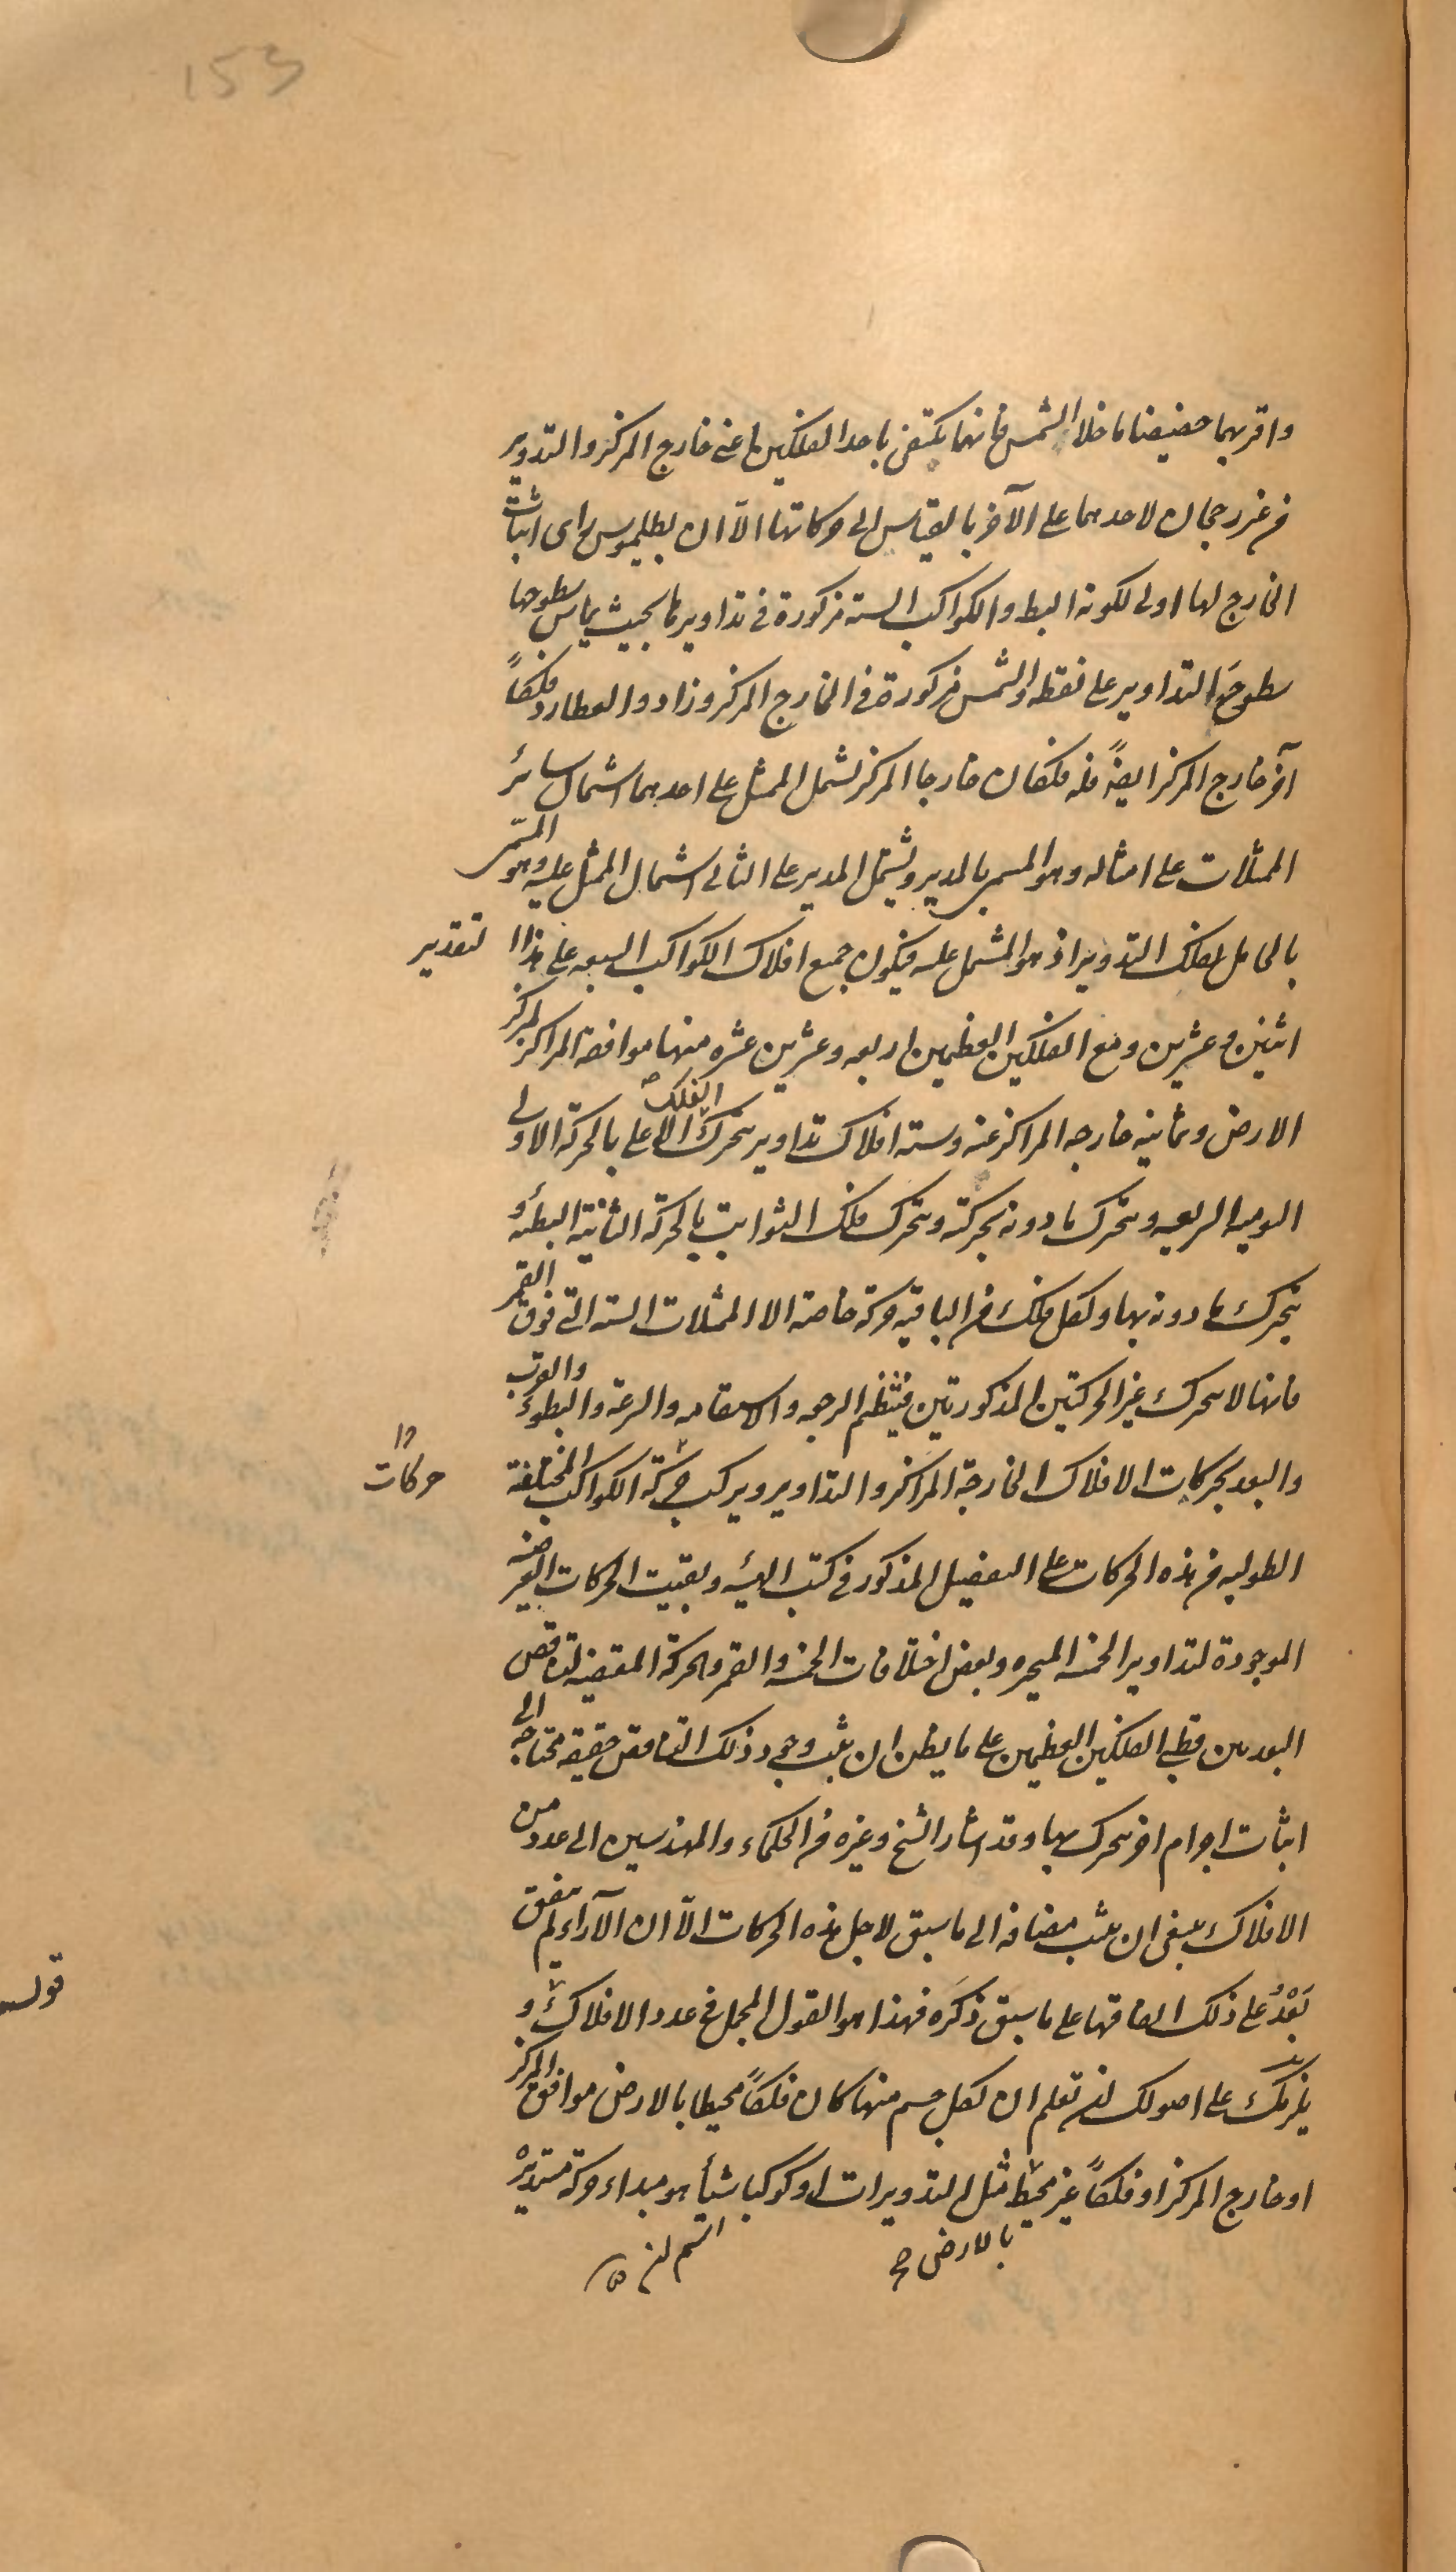 153
واقربهما حضيضا ما خلا الشمس فانهما يكتفى باحد الفلكين اعنى خارج المركز والتدوير
من غير رجحان لاحدهما على الآخر بالقياس الى حركاتها الّا ان بطلميوس راى اثبات
الخارج لها اولى لكونه ابسط والكواكب الستة مركوزة فى تداويرها بحيث يماس سطوحها
سطوح التداوير على نقطه والشمس مركوزة فى الخارج المركز وزادوا لعطارد فلكاً
آخر خارج المركز ايضاً فله فلكان خارجا المركز يشمل الممثل على احدهما اشتمال سائر
الممثلات على امثاله وهو المسمى بالمدير ويشتمل المدير على الثانى اشتمال الممثل عليه وهو المسمى
بالحامل لفلك التدوير اذ هو المشتمل عليه فيكون جميع افلاك الكواكب السبعه على هذا التقدير
اثنين وعشرين ومع الفلكين العظيمين اربعه وعشرين عشره منها موافقة المراكز لمركز
الارض وثمانيه خارجه المراكز عنه وسته افلاك تداوير يتحرك الفلك الاعلى بالحركة الاولى
اليوميه السريعه ويتحرك ما دونه بحركته ويتحرك فلك الثوابت بالحركة الثانية البطيئه و
يتحرك ما دونه بها ولكل فلك من الباقيه حركة خاصة الا الممثلات الستة التى فوق القمر
فانها لا يتحرك غير الحركتين المذكورتين فينتظم الرجعه والاستقامه والسرعة والبطوء والقرب
والبعد بحركات الافلاك الخارجة المراكز والتداوير ويتركب حركة الكواكب المختلفة
حركات
الطوليه من هذه الحركات على التفصيل المذكور فى كتب الهيئه وبقيت الحركات العرضيه
الموجودة لتداوير الخمسه المتحيره وبعض اختلافات الخمسه والقمر والحركة المقتضيه لتناقص
البعد بين قطبى الفلكين العظيمين على ما يظن ان ثبت وجود ذلك التناقص حقيقه محتاجة الى
اثبات اجرام اخر يتحرك بها وقد اشار الشيخ وغيره من الحكماء والمهندسين الى عدد من
الافلاك ينبغى ان يثبت مضافه الى ما سبق لاجل هذه الحركات الّا ان الآراء لم يتفق
بَعْدُ على ذلك اتفاقها على ما سبق ذكره فهذا هو القول المجمل فى عدد الافلاك و
يلزمك على اصولك ان تعلم ان لكل جسم منها كان فلكاً محيطا بالارض موافق المركز
او خارج المركز او فلكاً غير محيط مثل التدويرات او كوكبا شيأ هو مبداء حركة مستديرة
بالارض صح
قوله